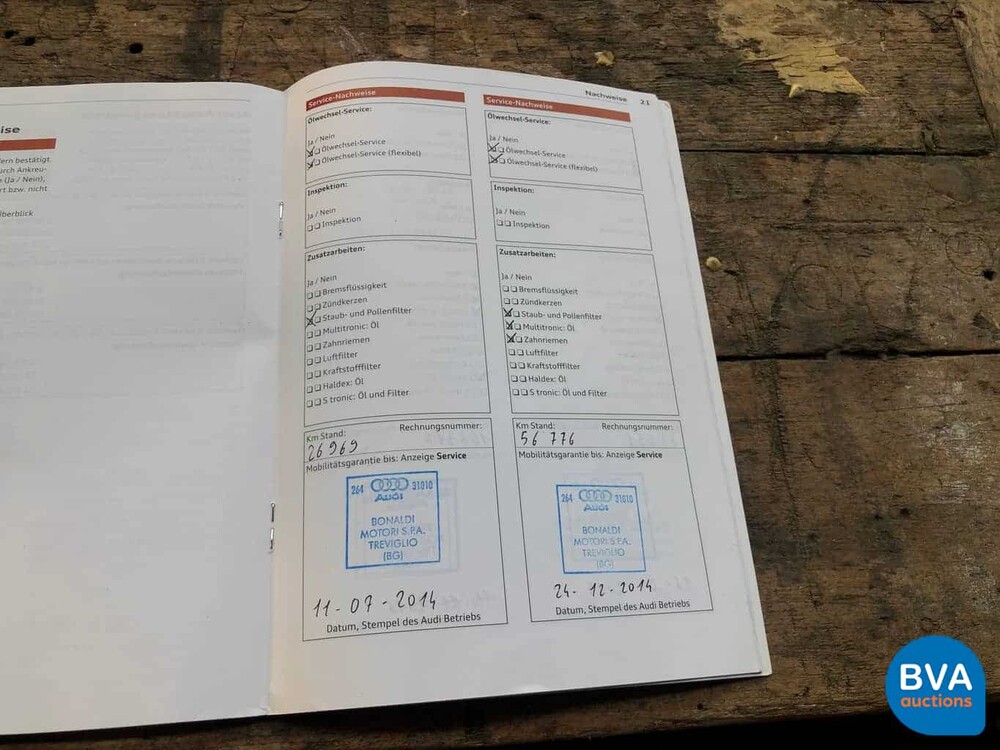 ise
ern bestätigt
urch Ankreu-
e (Ja / Nein),
rt bzw. nicht
berblick
Service-Nachweise
Ölwechsel-Service:
Ja / Nein
Ölwechsel-Service
Ölwechsel-Service (flexibel)
Inspektion:
Ja / Nein
Inspektion
Zusatzarbeiten:
Ja / Nein
Bremsflüssigkeit
Zündkerzen
Staub- und Pollenfilter
Multitronic: Öl
Zahnriemen
Luftfilter
Kraftstofffilter
Haldex: Öl
S tronic: Öl und Filter
Km Stand: Rechnungsnummer:
26969
Mobilitätsgarantie bis: Anzeige Service
264 Audi 31010
BONALDI
MOTORI S.P.A.
TREVIGLIO
(BG)
11-07-2014
Datum, Stempel des Audi Betriebs
Nachweise 21
Service-Nachweise
Ölwechsel-Service:
Ja / Nein
Ölwechsel-Service
Ölwechsel-Service (flexibel)
Inspektion:
Ja / Nein
Inspektion
Zusatzarbeiten:
Ja / Nein
Bremsflüssigkeit
Zündkerzen
Staub- und Pollenfilter
Multitronic: Öl
Zahnriemen
Luftfilter
Kraftstofffilter
Haldex: Öl
S tronic: Öl und Filter
Km Stand: Rechnungsnummer:
56776
Mobilitätsgarantie bis: Anzeige Service
264 Audi 31010
BONALDI
MOTORI S.P.A.
TREVIGLIO
(BG)
24-12-2014
Datum, Stempel des Audi Betriebs
BVA
auctions